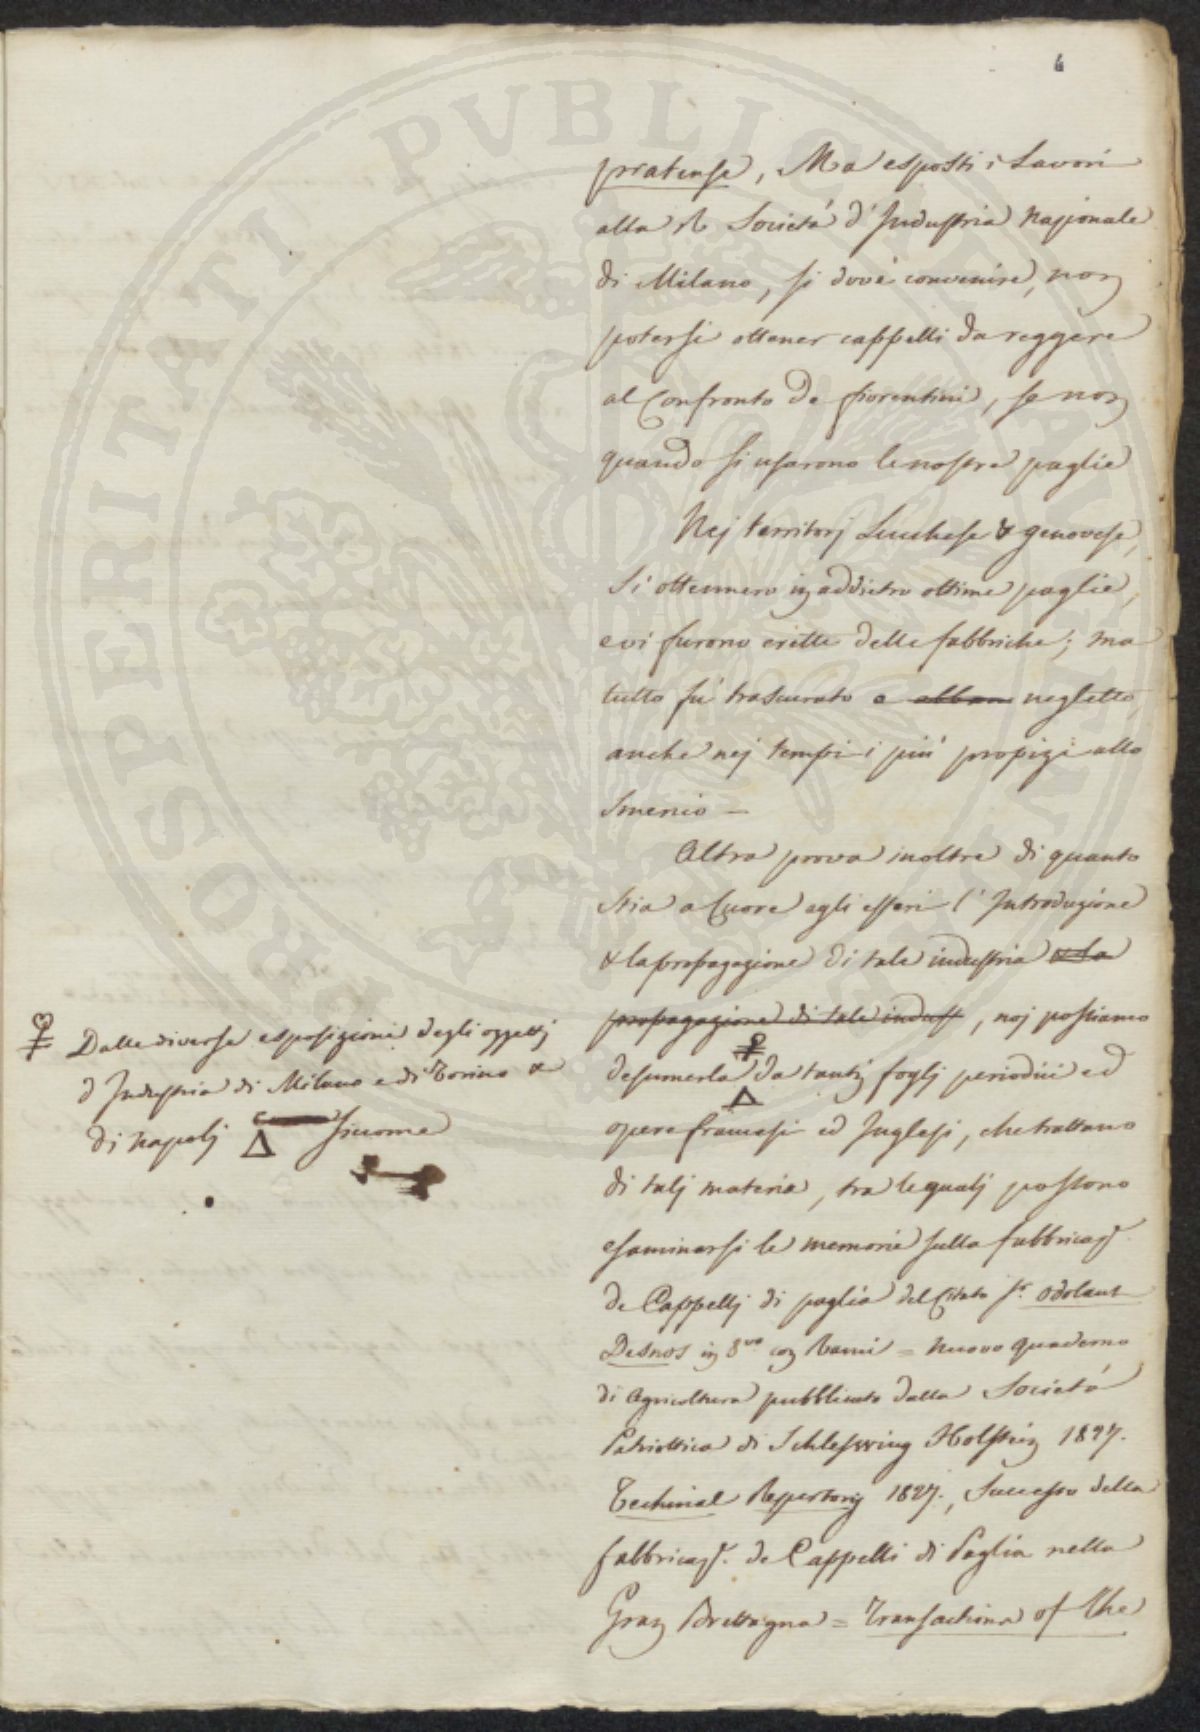 4
pratense, Ma esposti i Lavori
alla R Società d'Industria Nazionale
di Milano, si dové convenire, non
potersi ottener cappelli da reggere
al Confronto de fiorentini, se non
quando si usarono le nostre paglie
Nej territorj Lucchese & genovese,
si ottennero in addietro ottime paglie,
e vi furono erette delle fabbriche; ma
tutto fù trascurato e abban negletto
anche nej tempi i più propizi allo
Smercio —
Altra prova inoltre di quanto
stia a Cuore agli esteri l'Introduzione
& la propagazione di tale industria & la
propagazione di tale indust, noj possiamo
desumerla da tantj foglj periodici ed
opere francesi ed Inglesi, che trattano
di talj materie, tra le qualj possono
esaminarsi le memorie sulla fabbricaz.e
de Cappellj di paglia del Citato Sr. Odolant
Desnos in 8vo con Rami = Nuovo quaderno
di Agricoltura pubblicato dalla Società
Patriottica di Schleswing Holstein 1827.
Techinal Repertory 1827., Successo della
fabbricaz.e de Cappelli di Paglia nella
Gran Brettagna = Transactions of the
Dalle diverse esposizioni degli oggettj
d Industria di Milano e di Torino &
di Napolj Δ Siccome
PROSPERITATI PVBLICAE